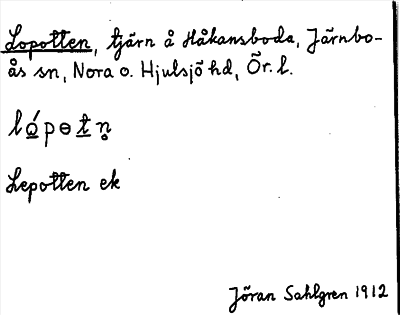 Lopotten, tjärn å Håkansboda, Järnbo-
ås sn, Nora o. Hjulsjö hd, Ör. l.
ló̲pɵt̲n̥
Lepotten ek
Jöran Sahlgren 1912